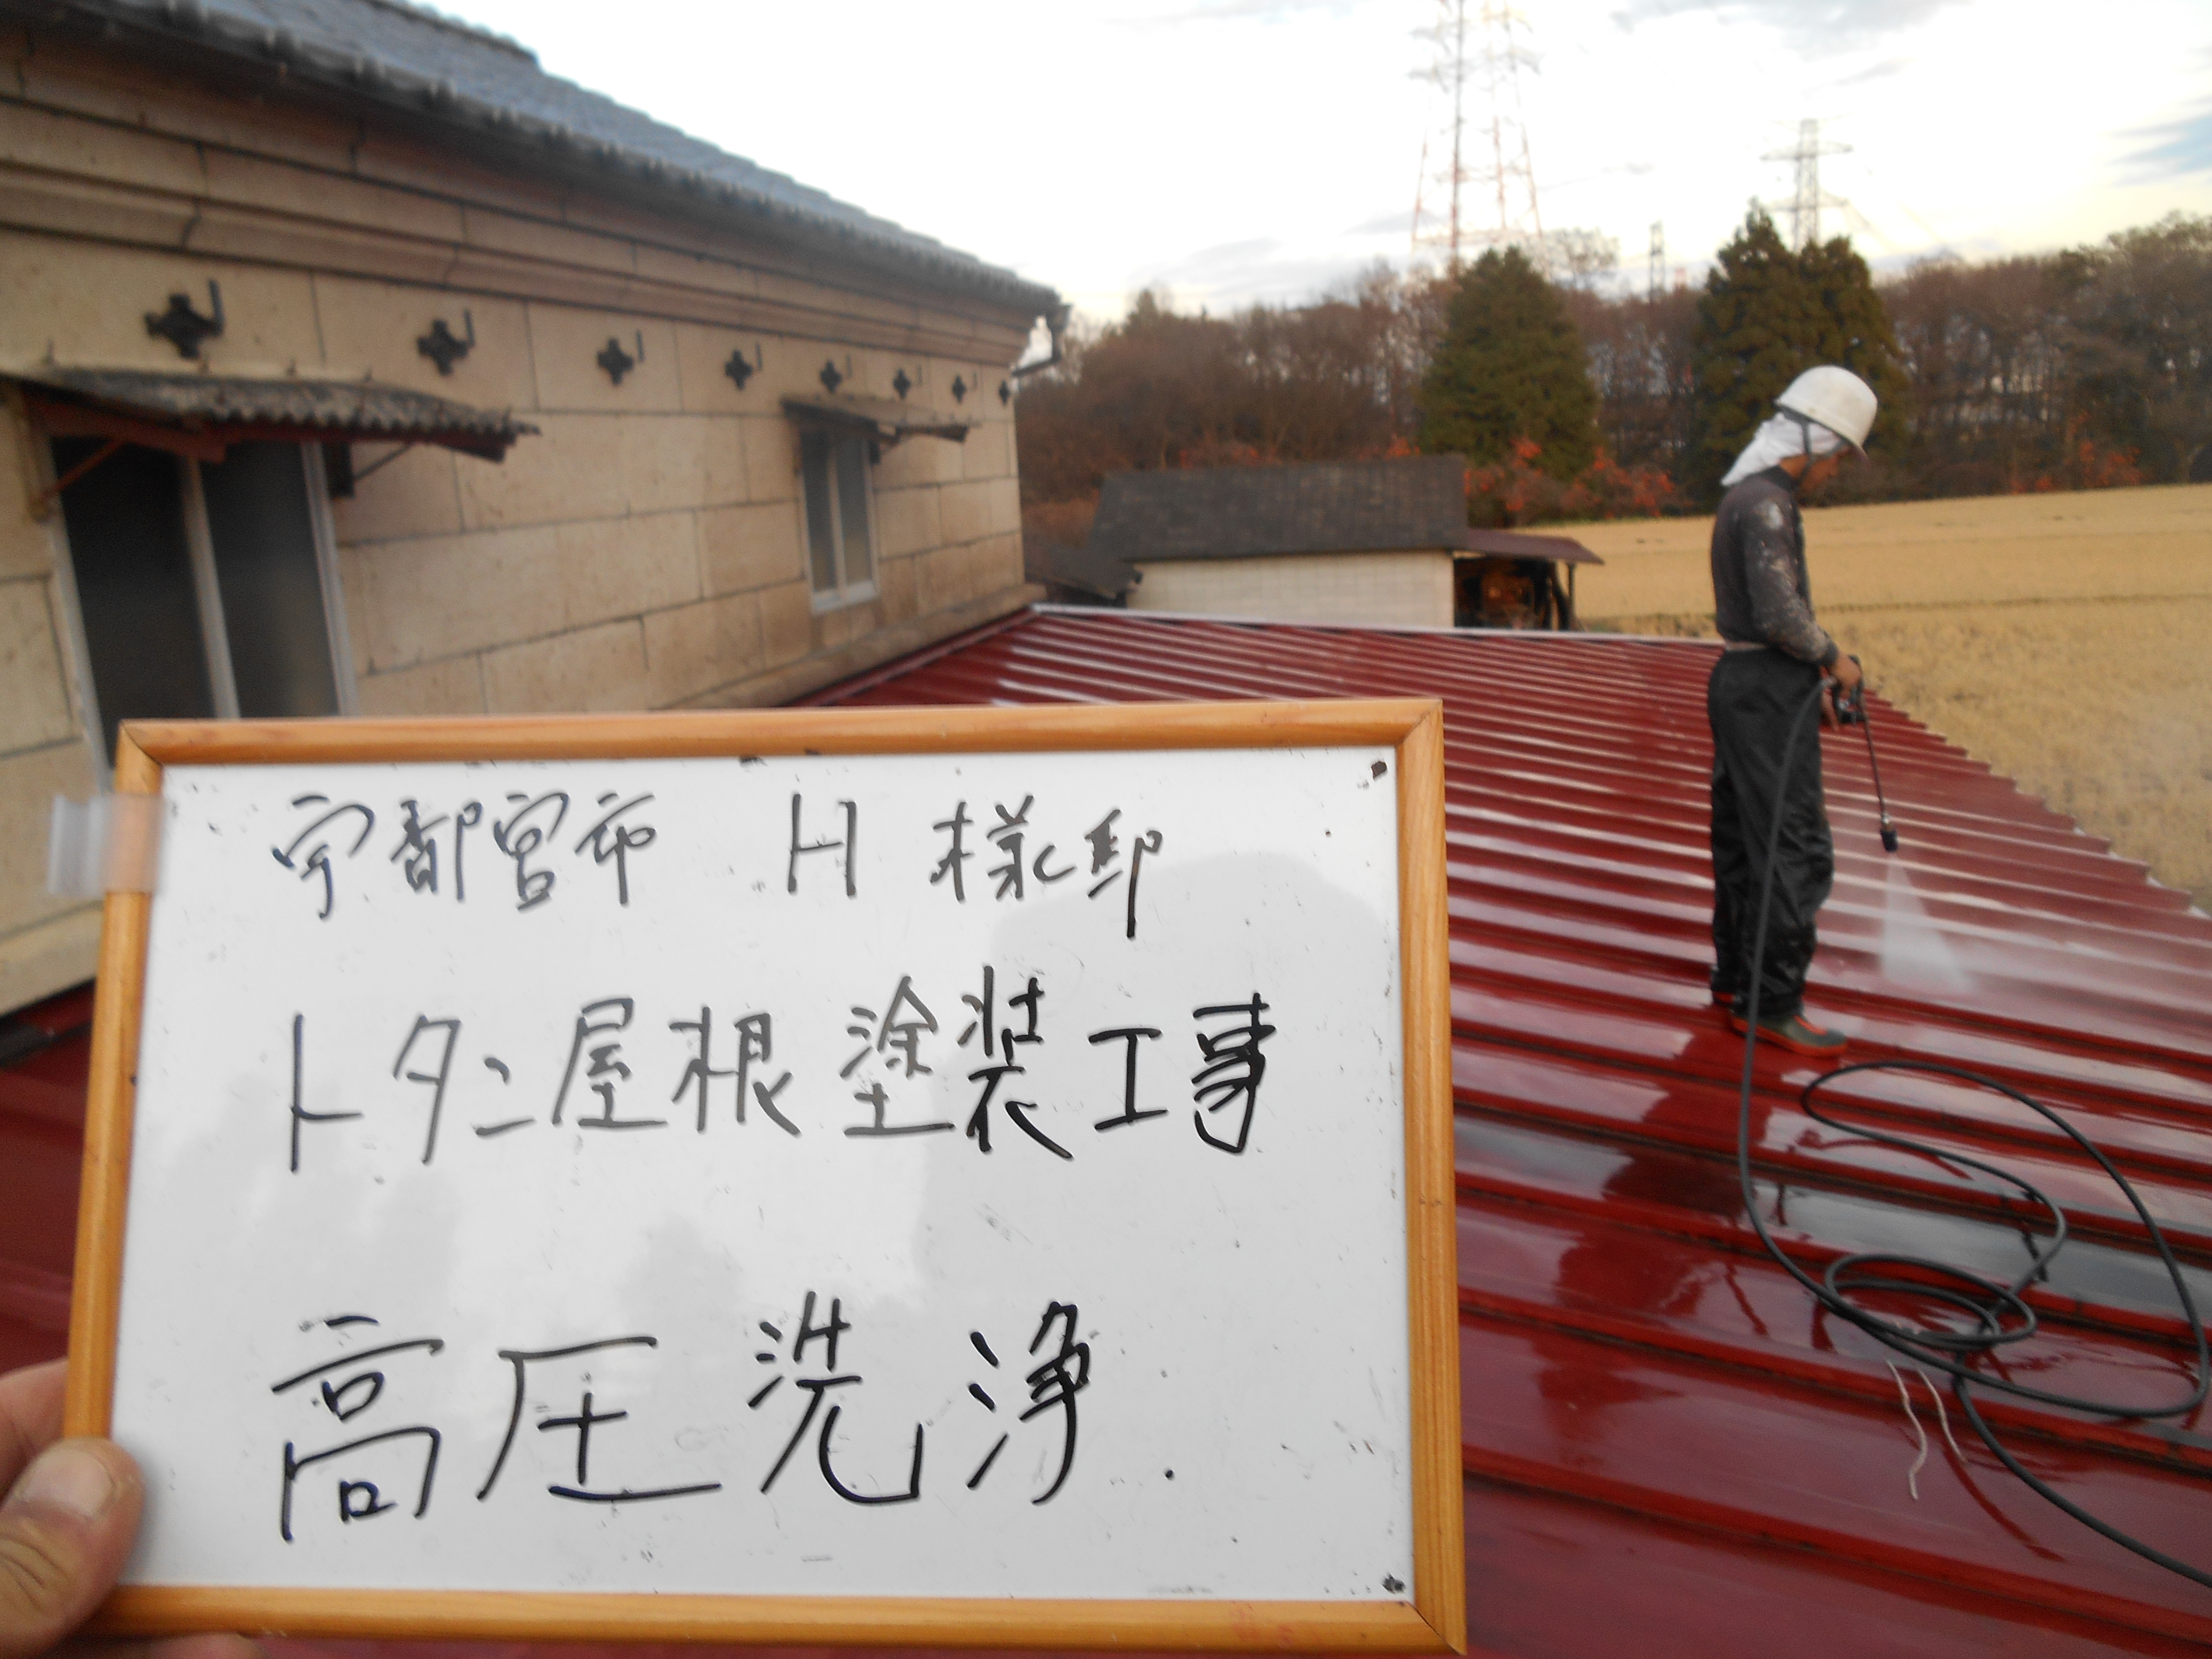 宇都宮市 H 様邸
トタン屋根塗装工事
高圧洗浄